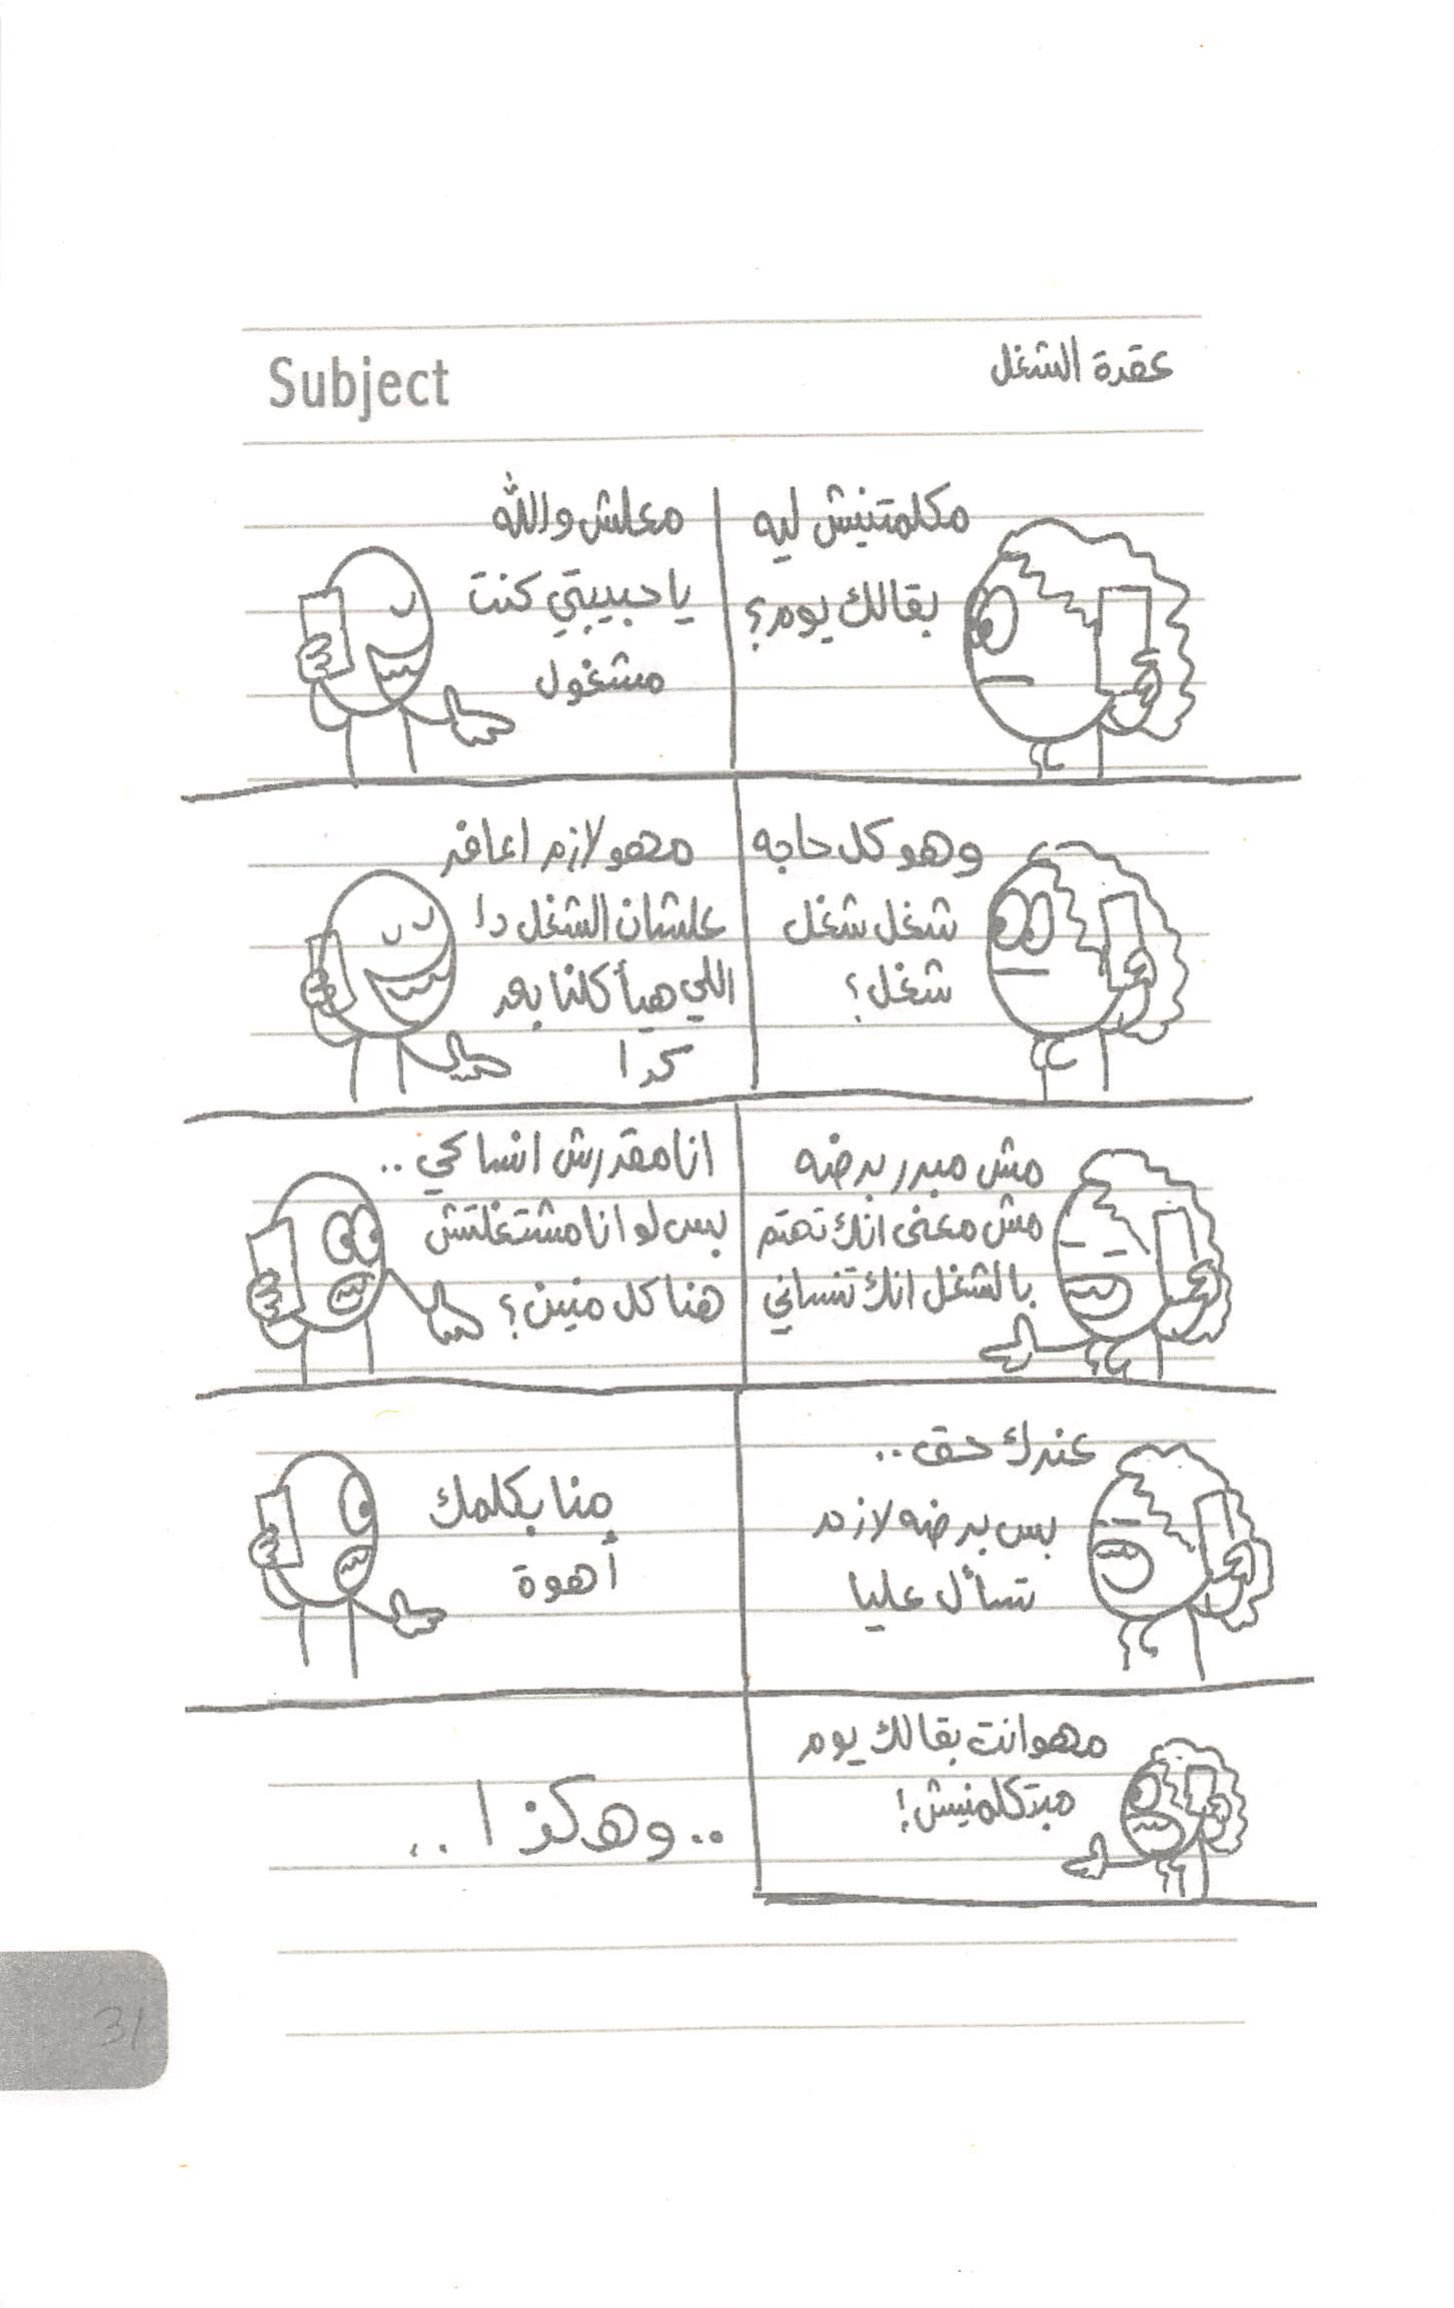 Subject
عقدة الشغل
مكلمتنيش ليه
بقالك يوم؟
معلش والله
يا حبيبتي كنت
مشغول
وهو كل حاجه
شغل شغل
شغل؟
مهو لازم اعافر
علشان الشغل دا
اللي هيأكلنا بعد
كدا
مش مبرر برضه
مش معنى انك تهتم
بالشغل انك تنساني
انا مقدرش انساكي..
بس لو انا مشتغلتش
هناكل منين؟
عندك حق..
بس برضه لازم
تسأل عليا
منا بكلمك
أهوة
مهو انت بقالك يوم
مبتكلمنيش!
..وهكذا..
31